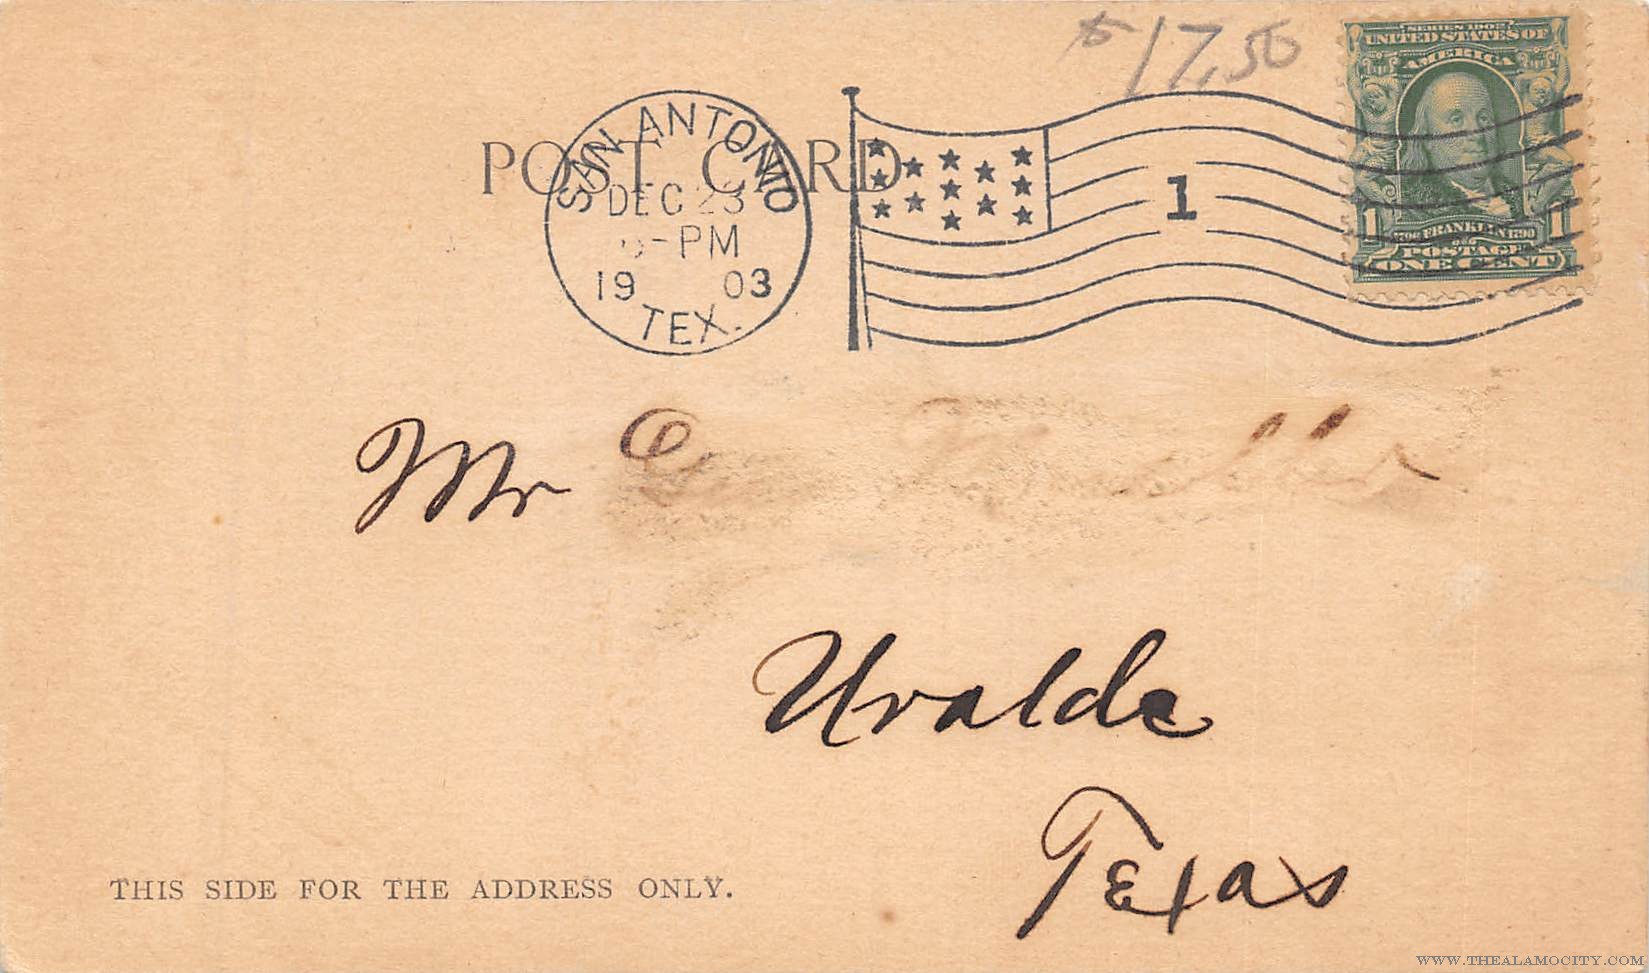 $17.50
SERIES 1902
UNITED STATES OF
AMERICA
1 1790 FRANKLIN 1790 1
POSTAGE
ONE CENT
POST CARD
SAN ANTONIO
DEC 23
-PM
1903
TEX.
1
Mr
Uvalde
Texas
THIS SIDE FOR THE ADDRESS ONLY.
WWW.THEALAMOCITY.COM